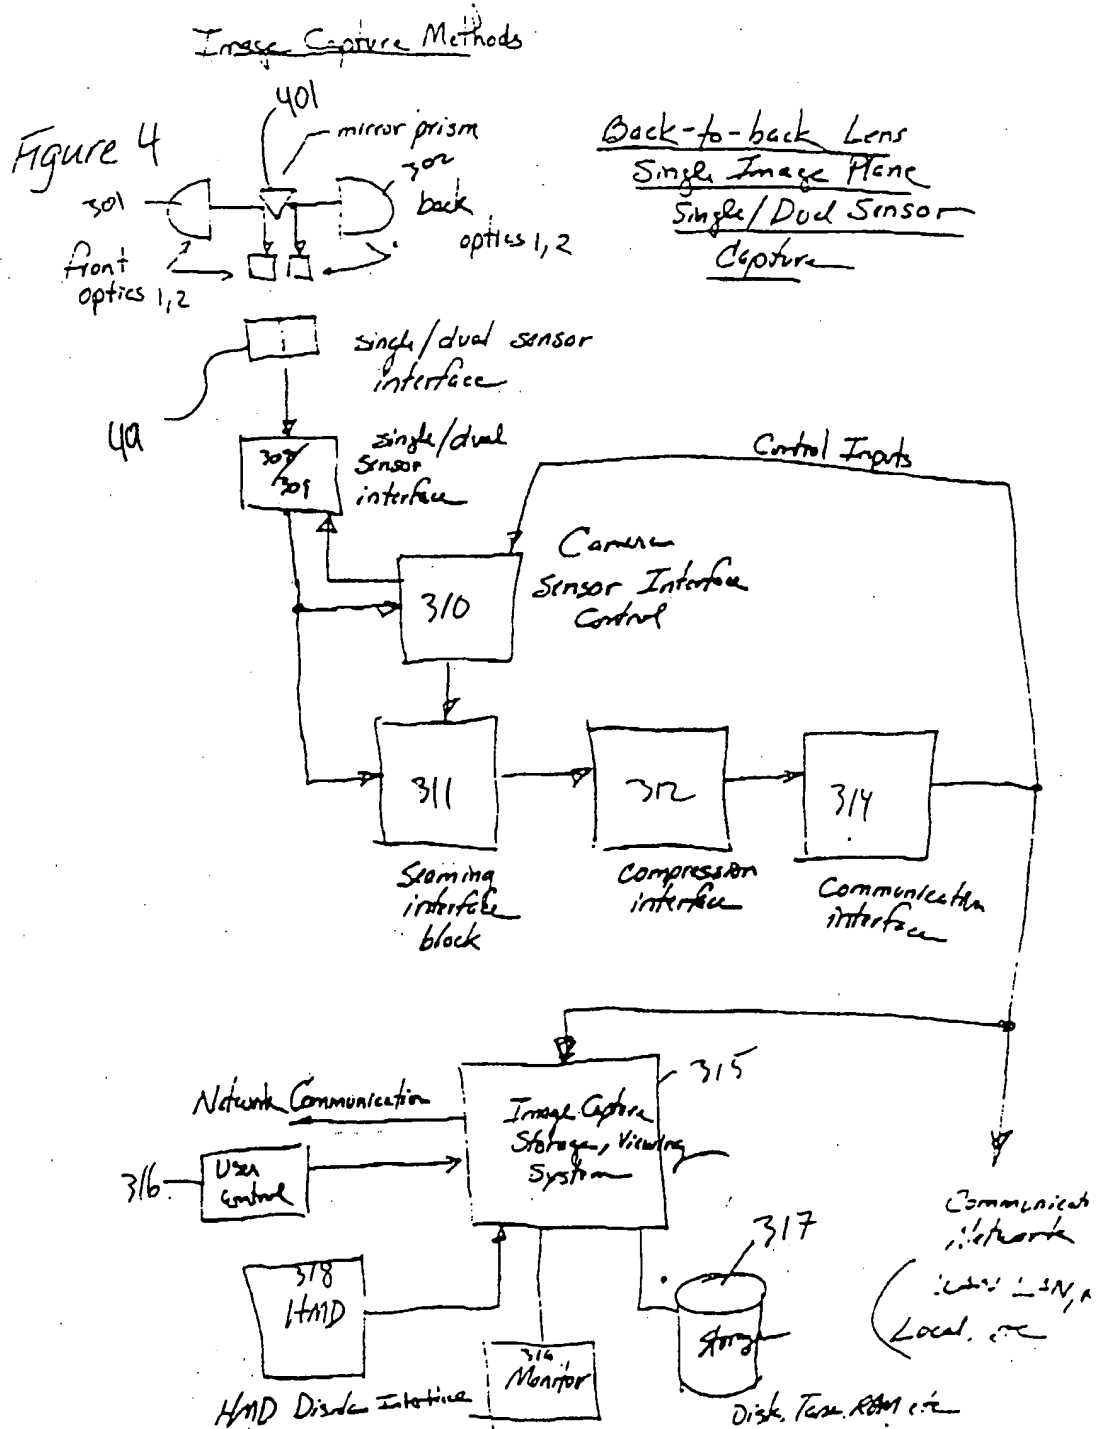 Image Capture Methods
401
Figure 4
mirror prism
302
301
back
optics 1, 2
front
optics 1,2
Back-to-back Lens
Single Image Plane
Single/Dual Sensor
Capture
single/dual sensor
interface
49
single/dual
sensor
interface
308/
309
Control Inputs
Camera
Sensor Interface
Control
310
311
312
314
Seaming
interface
block
compression
interface
Communication
interface
315
Network Communication
Image Capture
Storage, Viewing
System
316
User
Control
317
Communicati
Network
LAN,
Local, etc
318
HMD
Storage
Monitor
HMD Display Interface
Disk, Tape, RAM etc